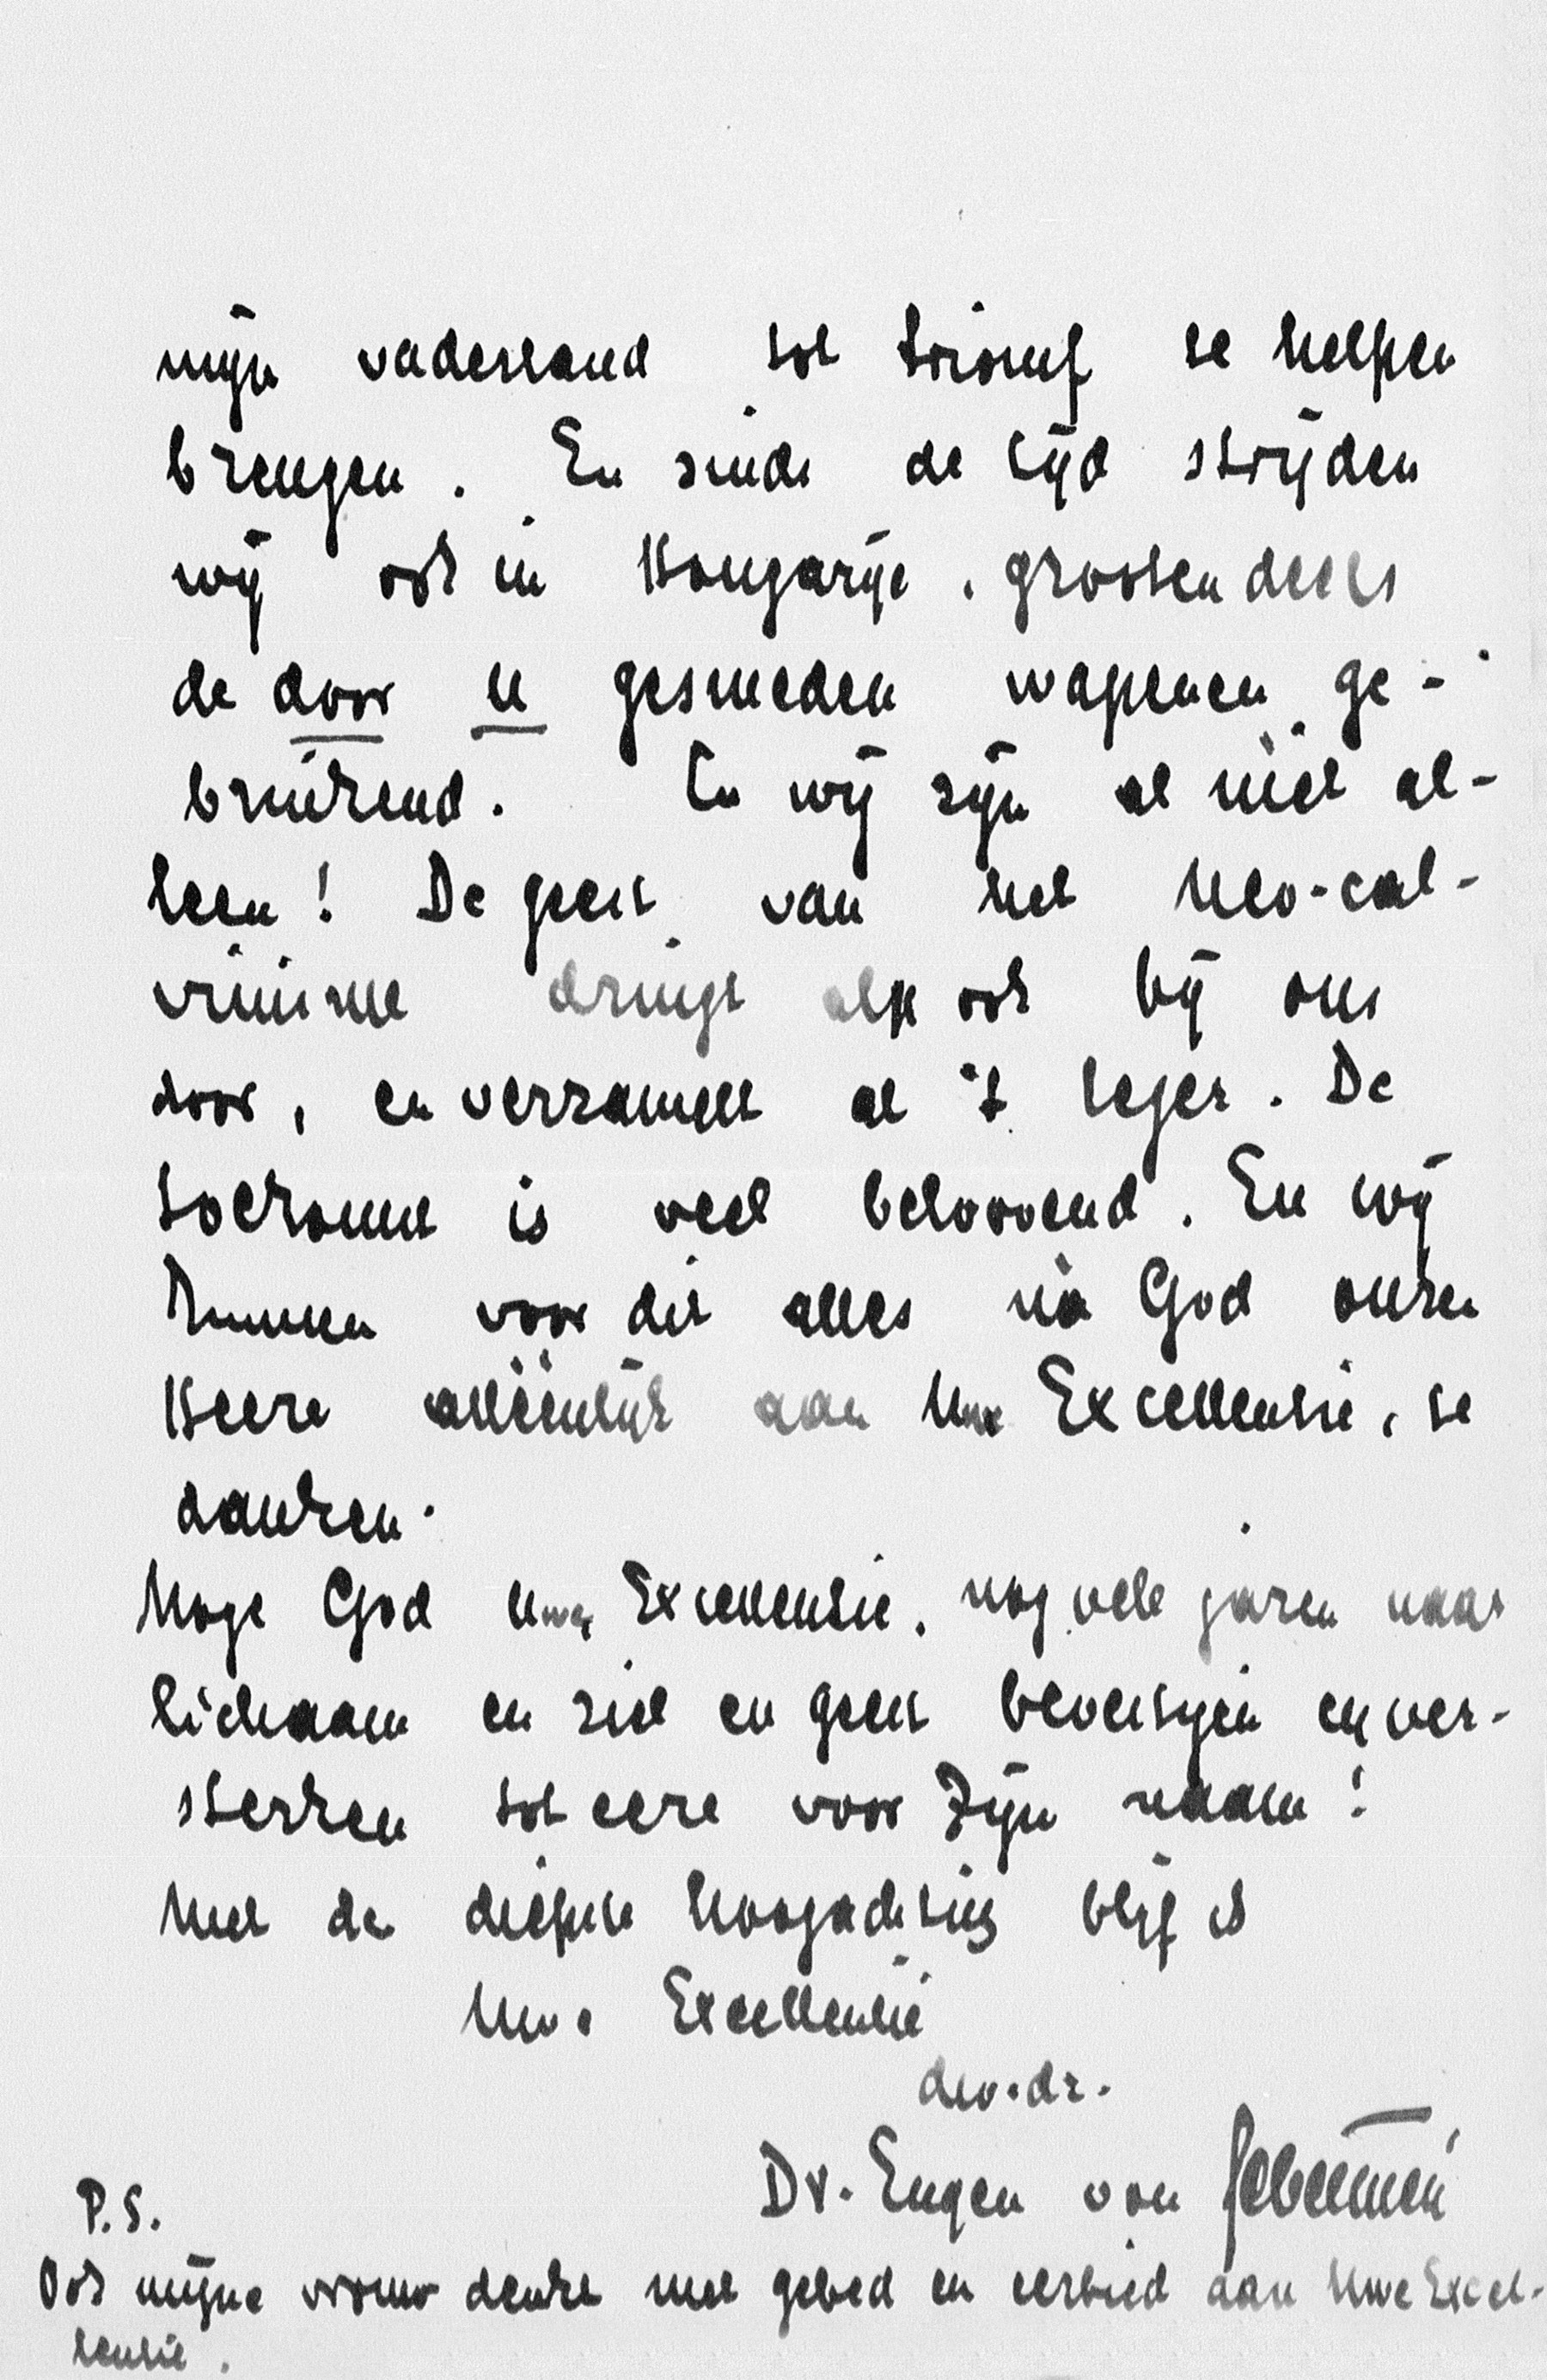 mijn vaderland tot triomf te helpen
brengen. En sinds de tijd strijden
wij ook in Hongarije, grootendeels
de door U gesmeden wapenen ge-
bruikend. En wij zijn al niet al-
leen! De geest van het neo-cal-
vinisme dringt ook bij ons
door, en verzamelt al 't leger. De
toekomst is veel belovend. En wij
kunnen voor dit alles na God onzen
Heere alléénlijk aan Uwe Excellentie, te
danken.
Moge God Uwe Excellentie, nog vele jaren naar
lichaam en ziel en geest bevestigen en ver-
sterken tot eere voor Zijn naam!
Met de diepste hoogachting blijf ik
Uwe Excellentie
dw. dr.
Dr. Eugen von Sebestyén
P.S.
Ook mijne vrouw denkt met gebed en eerbied aan Uwe Excel-
lentie.